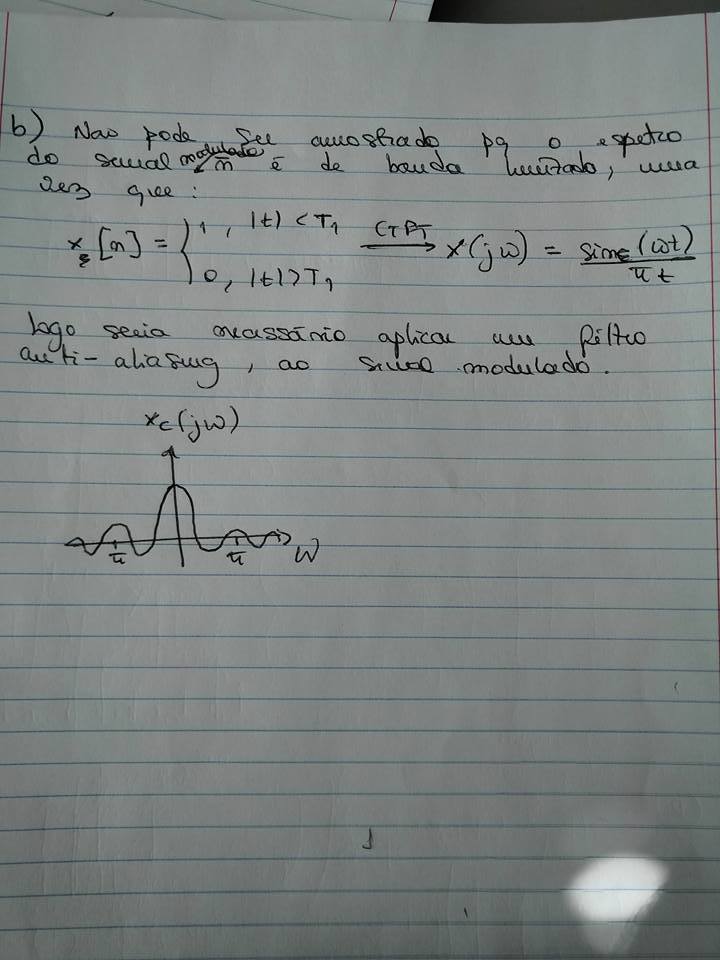 b) Nao pode ser amostrado pq o espetro
do sinal modulado ñ é de banda limitada, uma
vez que:
x[n] = { 1, |t| < T1
0, |t| > T1
CTFT → X(jω) = sinc(ωt) / πt
logo seria necessário aplicar um filtro
anti-aliasing, ao sinal modulado.
xc(jω)
π π ω